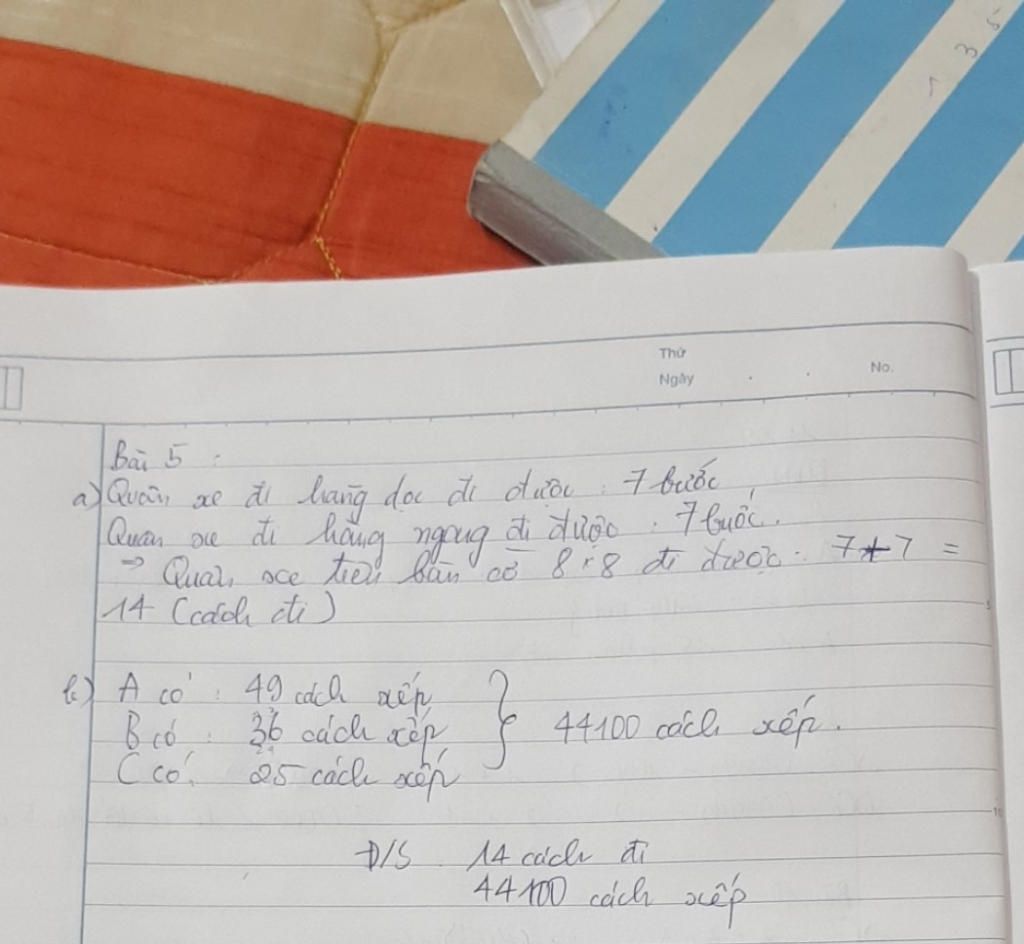 1 3 5
Thứ
Ngày
No.
Bài 5 :
a) Quân xe đi hàng dọc đi được : 7 bước
Quân xe đi hàng ngang đi được : 7 bước.
⇒ Quân xe trên bàn cờ 8×8 đi được : 7+7 =
14 (cách đi)
b) A có : 49 cách xếp
B có : 36 cách xếp } 44100 cách xếp.
C có : 25 cách xếp
Đ/S 14 cách đi
44100 cách xếp